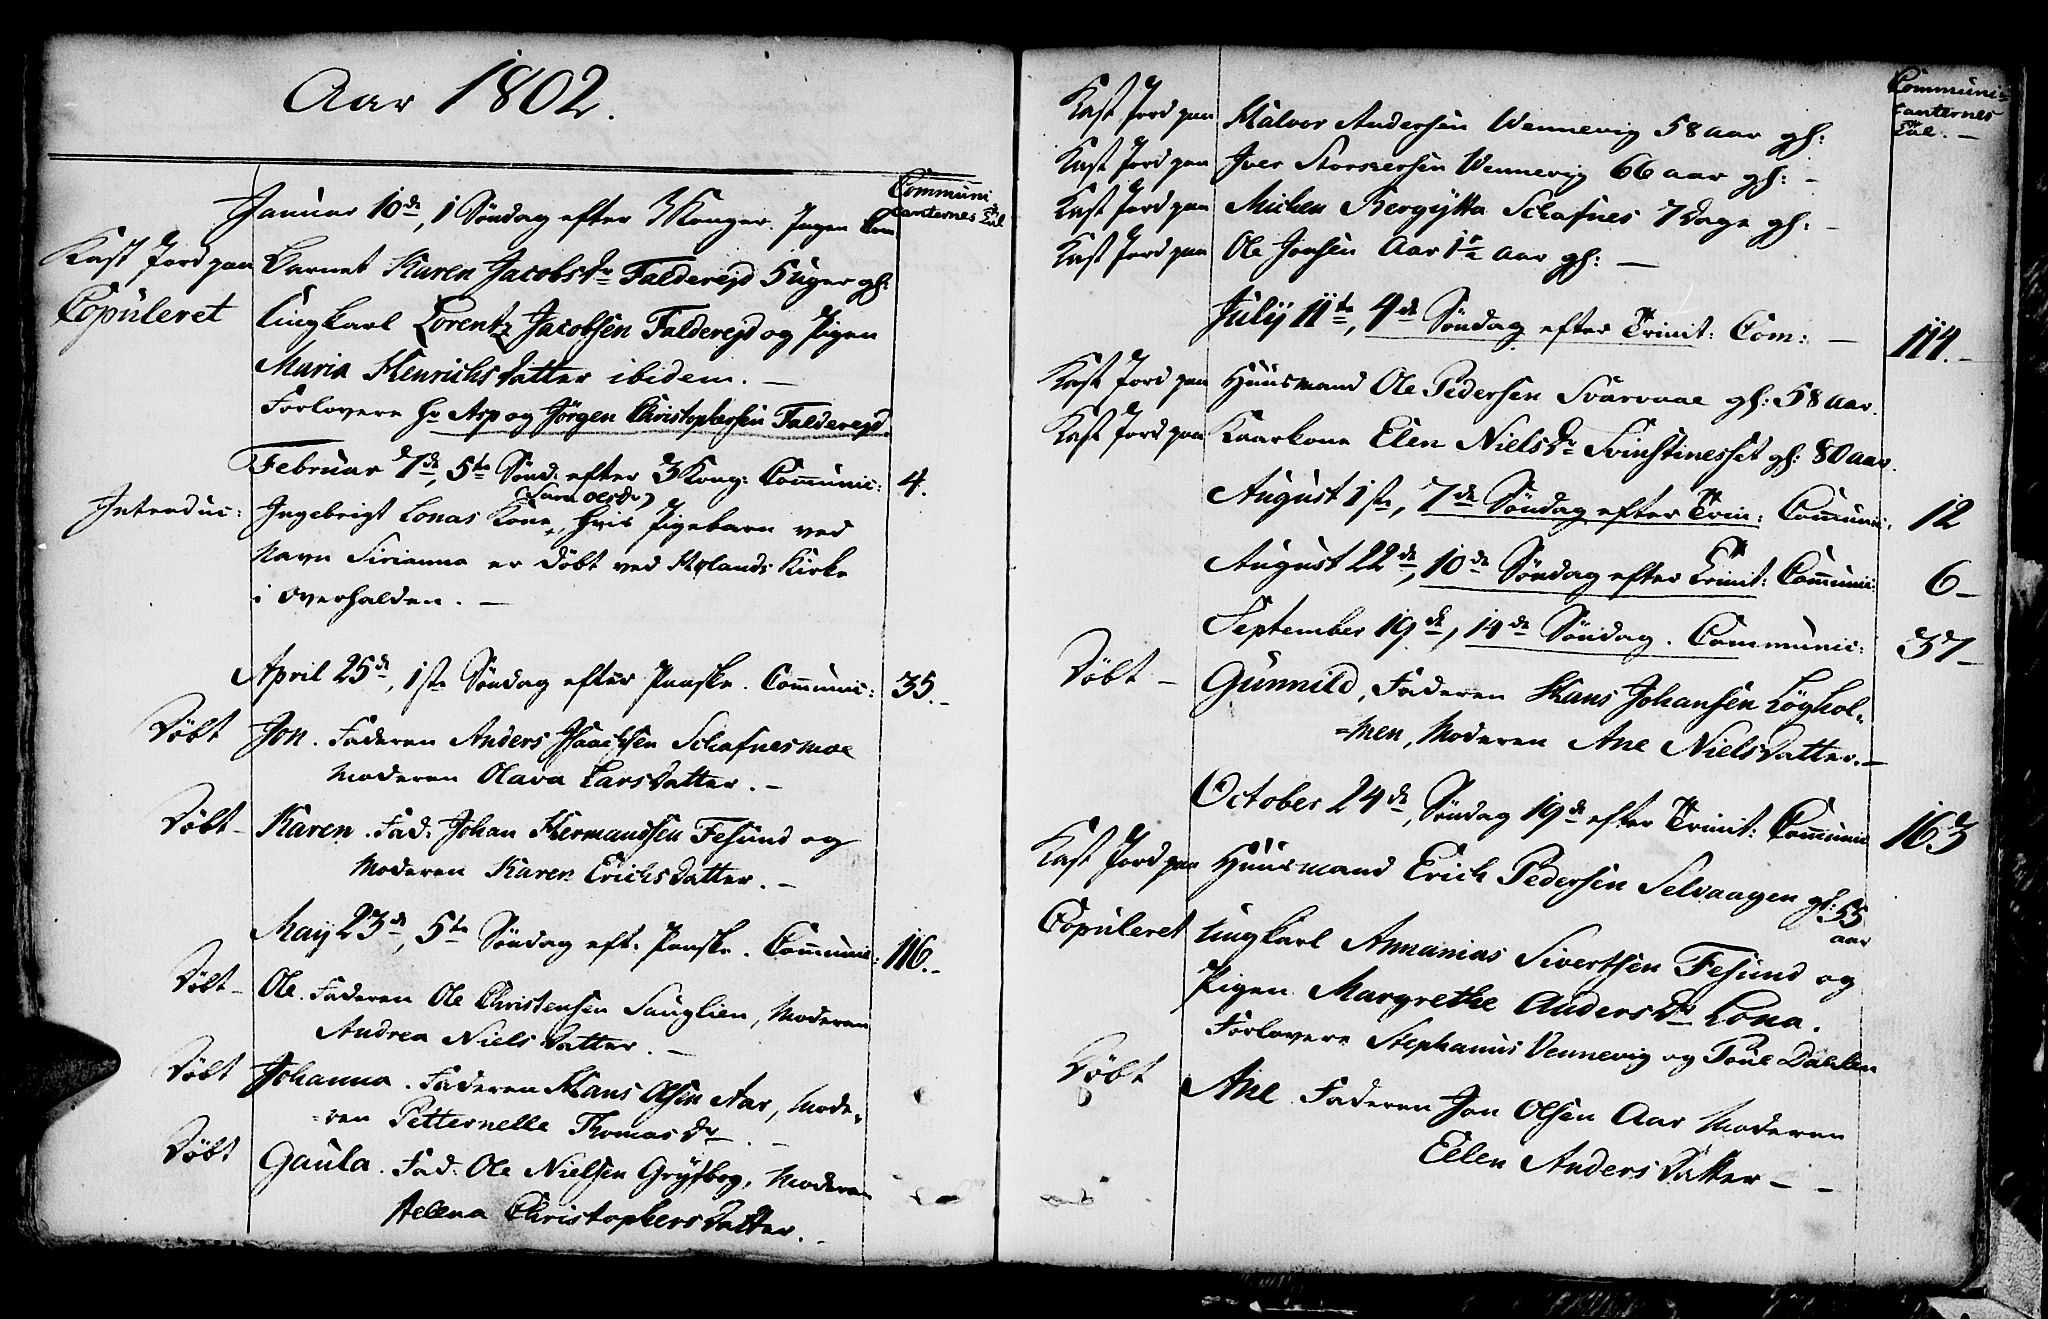 Aar 1802.
Communi
canternes
Tal
Januar 10de, 1 Søndag efter 3 Konger. Ingen Com
Kast Jord paa Barnet Karen Jacobsdr Falderejd 5 uger gl:
Copuleret Ungkarl Lorentz Jacobsen Falderejd og Pigen
Maria Henrichsdatter ibidem. –
Forlovere Hr Asp og Jørgen Christophersen Falderejd.
Februar 7de, 5te Sønd: efter 3 Kong: Communic: 4.
Introduc: Ingebrigt Lonas Kone, hvis Pigebarn ved
Navn Sirianna er Døbt ved Kirke
i Overhalden. –
April 25de, 1ste Søndag efter Paaske. Communic: 35. –
Døbt Jon. Faderen Anders Isaachsen Schafnesmoe
Moderen Olava Larsdatter. –
Døbt – Karen. Fad: Johan Hermandsen Fesund og
Moderen Karen Erichsdatter. –
Maij 23de, 5te Søndag eft: Paaske. Communic: 116. –
Døbt – Ole. Faderen Ole Christensen Sauglien, Moderen
Andrea Nielsdatter. –
Døbt Johanna. Faderen Hans Olsen Aar, Mode-
=ren Petternelle Thomasdr. –
Døbt Gaula. Fad: Ole Nielsen Moderen
Helena Christophersdatter. –
Communi=
canternes
Tal. –
Kast Jord paa Halvor Andersen Wennevig 58 aar gl:
Kast Jord paa Iver Wennevig 66 aar gl: –
Kast Jord paa Bergitta Schafnes 7 Dage gl: –
Kast Jord paa Ole Jonsen Aar aar gl: –
Julij 11te, 4de Søndag efter Trinit: Com: – 114. –
Kast Jord paa Huusmand Ole Pedersen gl: 58 aar.
Kast Jord paa Kaarkone Elen Nielsdr gl: 80 aar.
August 1ste, 7de Søndag efter Trin: Communi: 12
August 22de, 10de Søndag efter Trinit: Communic: 6 –
September 19de, 14de Søndag. Communic: 37 –
Døbt – Gunnild, Faderen Hans Johansen Løghol-
=men, Moderen Ane Nielsdatter. –
October 24de, Søndag 19de efter Trinit: Communic 163
Kast Jord paa Huusmand Erich Pedersen Selvaagen gl: 55
aar
Copuleret Ungkarl Annanias Sivertsen Fesund og
Pigen Margrethe Andersdr Lona.
Forlovere Stephanus Vennevig og Poul Dahlen
Døbt Ane. Faderen Jon Olsen Aar Moderen
Ellen Andersdatter – –